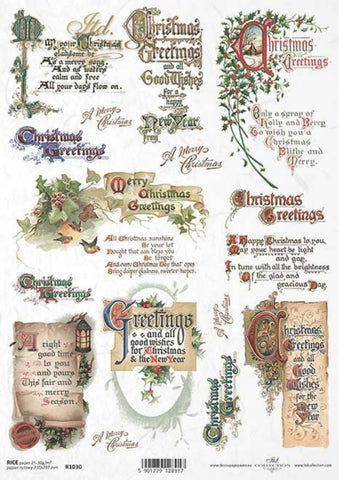 Itd.
May your Christmas
gladsome be
As a merry song,
And as waters
calm and free
All your days flow on.
Christmas
Greetings
and all
Good Wishes
For a
happy
New Year
A Merry
Christmas
A Merry
Christmas
Christmas
Greetings
Only a spray of
Holly and Berry
To wish you a
Christmas
Blithe and
Merry.
Christmas
Greetings.
Merry
Christmas
Greetings
All Christmas sunshine
Be your lot
Nought that can bless you
Be forgot
And every Christmas Day that opes
Bring
Christmas
Greetings
A Happy Christmas to you,
May your heart be light
and gay,
In tune with all the brightness
Of the glad and
gracious Day.
Christmas
Greetings
A
right
good time
to you
and yours
This fair and
merry
Season.
Greetings
and all
good wishes
for Christmas
& the New Year
A Merry
Christmas
A Merry
Christmas
Christmas
Greetings
Christmas
Greetings
and all
Good
Wishes
for
the
New
Year
RICE paper 25-30g/m²
papier ryżowy 210x297 mm
R1030
5 901779 128917
www.decoupagepapier.eu
Itd.
COLLECTION